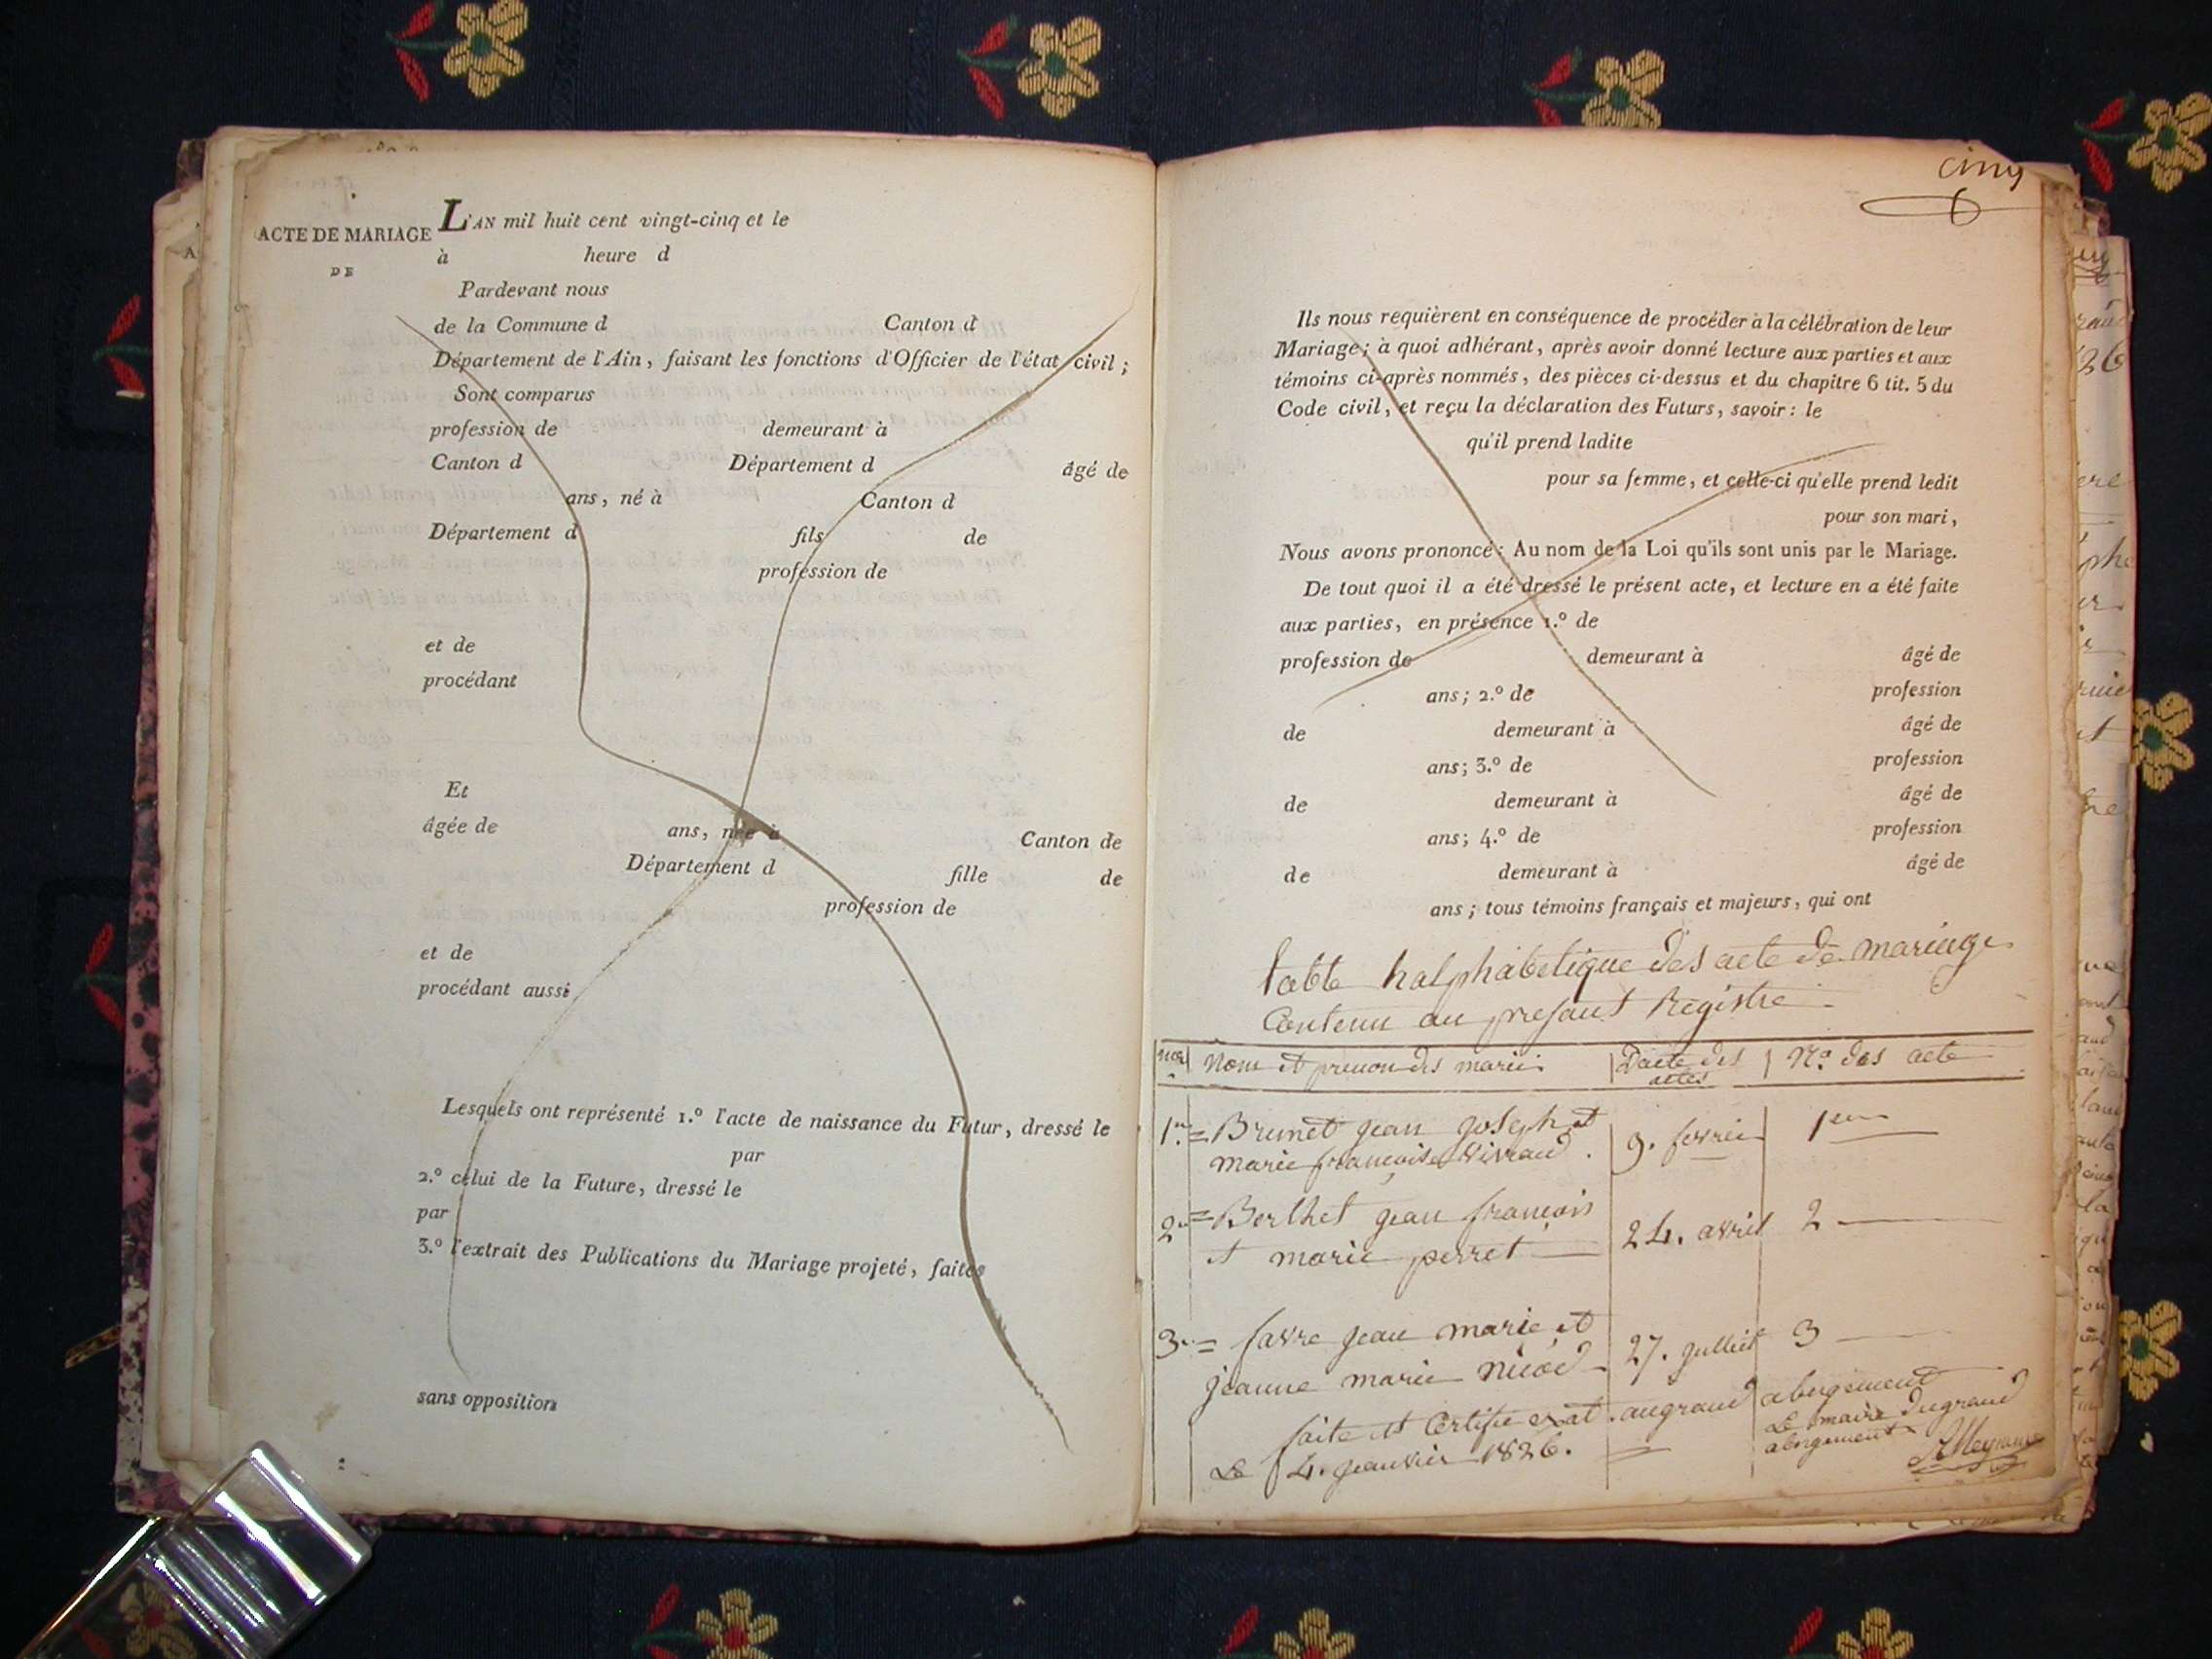 ACTE DE MARIAGE
DE
L'AN mil huit cent vingt-cinq et le
à heure d
Pardevant nous
de la Commune d Canton d
Département de l'Ain, faisant les fonctions d'Officier de l'état civil;
Sont comparus
profession de demeurant à
Canton d Département d âgé de
ans, né à Canton d
Département d fils de
profession de
et de
procédant
Et
âgée de ans, née à Canton de
Département d fille de
profession de
et de
procédant aussi
Lesquels ont représenté 1.º l'acte de naissance du Futur, dressé le
par
2.º celui de la Future, dressé le
par
3.º l'extrait des Publications du Mariage projeté, faites
sans opposition
cinq
Ils nous requièrent en conséquence de procéder à la célébration de leur
Mariage; à quoi adhérant, après avoir donné lecture aux parties et aux
témoins ci-après nommés, des pièces ci-dessus et du chapitre 6 tit. 5 du
Code civil, et reçu la déclaration des Futurs, savoir: le
qu'il prend ladite
pour sa femme, et celle-ci qu'elle prend ledit
pour son mari,
Nous avons prononcé: Au nom de la Loi qu'ils sont unis par le Mariage.
De tout quoi il a été dressé le présent acte, et lecture en a été faite
aux parties, en présence 1.º de
profession de demeurant à âgé de
ans; 2.º de profession
de demeurant à âgé de
ans; 3.º de profession
de demeurant à âgé de
ans; 4.º de profession
de demeurant à âgé de
ans; tous témoins français et majeurs, qui ont
table halphabetique des acte de mariage
Contenu au presant Registre
Nom et prenon des mariés Dacte des actes No. des acte
1er = Brunet jean joseph et
marie françoise 9. fevrier 1er
2e = Berthet jean françois
et marie perret 24. avril 2
3e = favre jean marie et
jeanne marie nicod 27. julliet 3
faite et Certifie exat. au grand abergement
Le 4. janvier 1826.
Le maire du grand
abergement